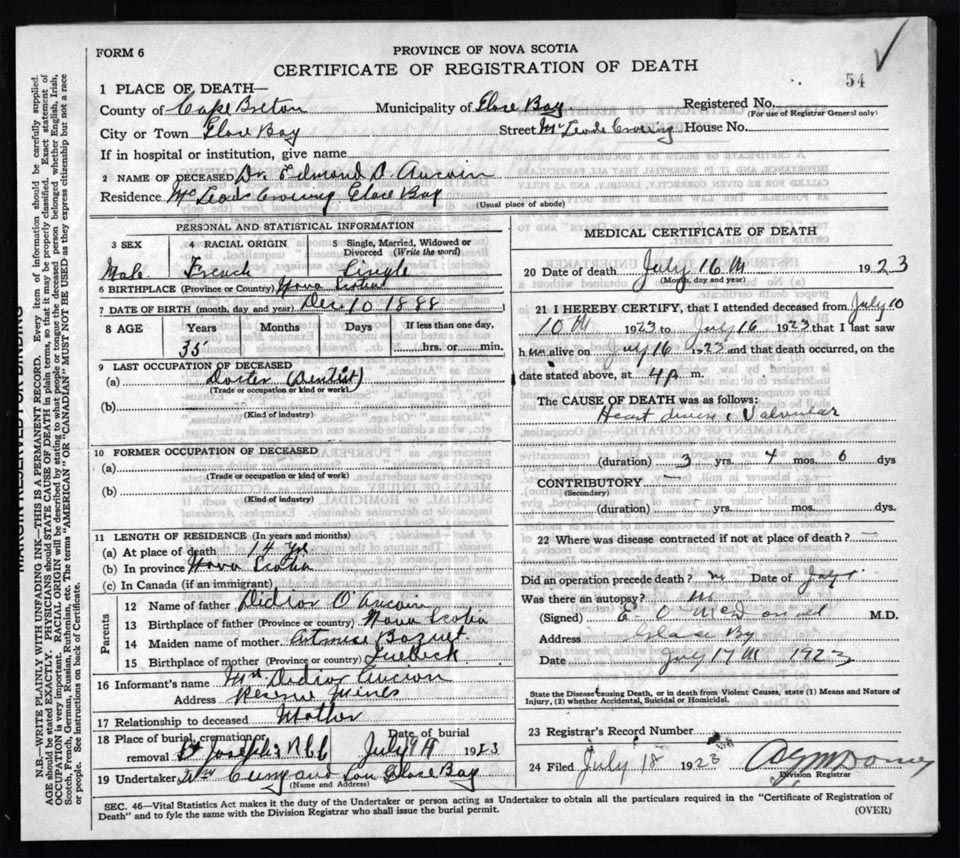 FORM 6
PROVINCE OF NOVA SCOTIA
CERTIFICATE OF REGISTRATION OF DEATH
54
1 PLACE OF DEATH—
County of Cape Breton Municipality of Glace Bay Registered No.
(For use of Registrar General only)
City or Town Glace Bay Street McLeods Crossing House No.
If in hospital or institution, give name
2 NAME OF DECEASED Dr. Edmond A. Aucoin
Residence McLeods Crossing Glace Bay
(Usual place of abode)
PERSONAL AND STATISTICAL INFORMATION
3 SEX 4 RACIAL ORIGIN 5 Single, Married, Widowed or Divorced (Write the word)
Male French Single
6 BIRTHPLACE (Province or Country) Nova Scotia
7 DATE OF BIRTH (month, day and year) Dec 10 1888
8 AGE Years Months Days If less than one day,
35 hrs. or min.
9 LAST OCCUPATION OF DECEASED
(a) Doctor (Dentist)
(Trade or occupation or kind or work)
(b)
(Kind of industry)
10 FORMER OCCUPATION OF DECEASED
(a)
(Trade or occupation or kind of work)
(b)
(Kind of industry)
11 LENGTH OF RESIDENCE (In years and months)
(a) At place of death 14 yrs
(b) In province Nova Scotia
(c) In Canada (if an immigrant)
Parents
12 Name of father
13 Birthplace of father (Province or country) Nova Scotia
14 Maiden name of mother
15 Birthplace of mother (Province or country)
16 Informant's name Aucoin
Address Reserve Mines
17 Relationship to deceased Mother
18 Place of burial, cremation or removal Date of burial
St Josephs July 19 1923
19 Undertaker and Son Glace Bay
(Name and Address)
MEDICAL CERTIFICATE OF DEATH
20 Date of death July 16 1923
(Month, day and year)
21 I HEREBY CERTIFY, that I attended deceased from July 10
1923 to July 16 1923 that I last saw
h im alive on July 16 1923 and that death occurred, on the
date stated above, at 4 p m.
The CAUSE OF DEATH was as follows:
Heart Valvular
(duration) 3 yrs. 4 mos. 6 dys
CONTRIBUTORY —
(Secondary)
(duration) yrs. mos. dys.
22 Where was disease contracted if not at place of death? —
Did an operation precede death? Date of
Was there an autopsy? no
(Signed) M.D.
Address Glace Bay
Date July 17 1923
State the Disease causing Death, or in death from Violent Causes, state (1) Means and Nature of
Injury, (2) whether Accidental, Suicidal or Homicidal.
23 Registrar's Record Number
24 Filed July 18 1923
Division Registrar
SEC. 46—Vital Statistics Act makes it the duty of the Undertaker or person acting as Undertaker to obtain all the particulars required in the "Certificate of Registration of
Death" and to fyle the same with the Division Registrar who shall issue the burial permit. (OVER)
MARGIN RESERVED FOR BINDING
N.B.—WRITE PLAINLY WITH UNFADING INK—THIS IS A PERMANENT RECORD. Every item of information should be carefully supplied.
AGE should be stated EXACTLY. PHYSICIANS should STATE CAUSE OF DEATH in plain terms, so that it may be properly classified. Exact statement of
OCCUPATION is very important. RACIAL ORIGIN will be described by stating to what people or tongue the deceased person belonged whether English, Irish,
Scotch, French, German, Russian, Ruthenian, etc. The terms "AMERICAN" OR "CANADIAN" MUST NOT BE USED as they express citizenship but not a race
or people. See instructions on back of Certificate.